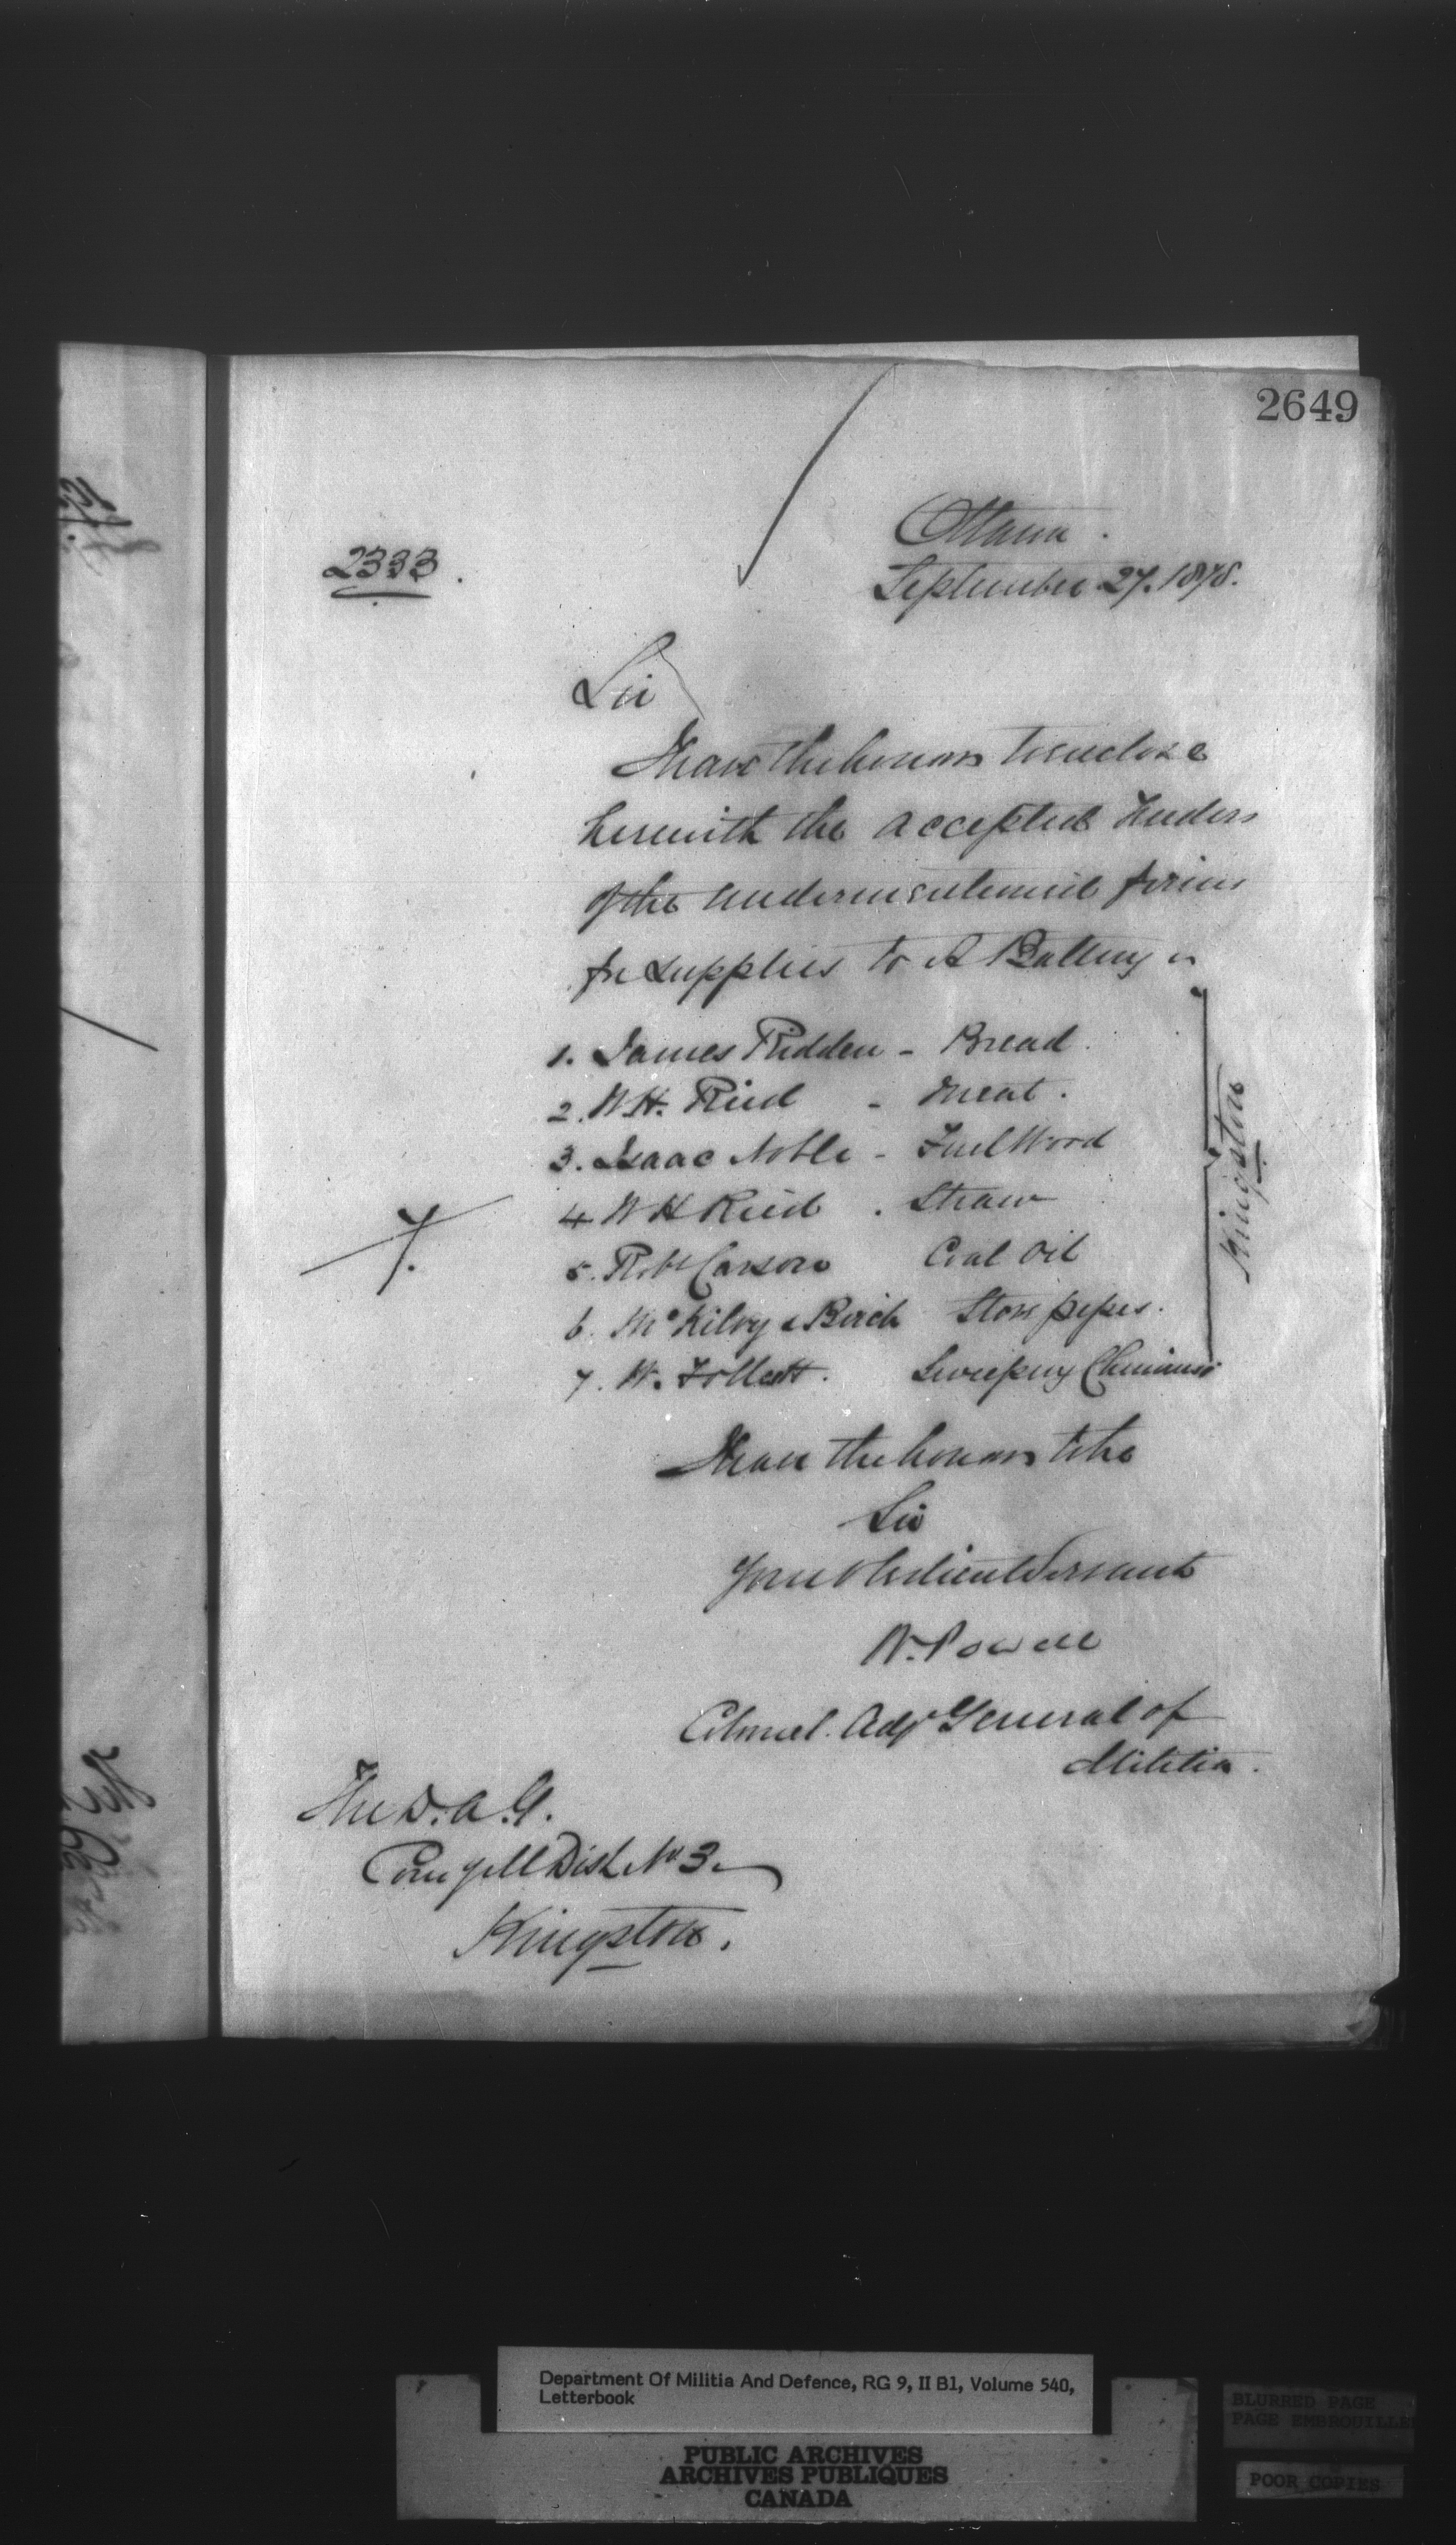 2649
2333.
Ottawa.
September 27. 1878.
Sir
I have the honor to enclose
herewith the accepted Tenders
of the undermentioned firms
for supplies to A Battery
1. James Redden - Bread.
2. W.H. Reid - Meat.
3. Isaac Noble - Fuel Wood
4 W H Reid . Straw
5. Robt Carson Coal Oil
6. McKilvy & Birch Stove pipes.
7. W. Follett. Sweeping Chimneys
Kingston
7.
I have the honor to be
Sir
Your obedient Servant
W. Powell
Colonel. Adjt General of
Militia.
The D.A.G.
Comg Mil Dist No 3
Kingston.
Department Of Militia And Defence, RG 9, II B1, Volume 540,
Letterbook
PUBLIC ARCHIVES
ARCHIVES PUBLIQUES
CANADA
BLURRED PAGE
PAGE EMBROUILLE
POOR COPIES